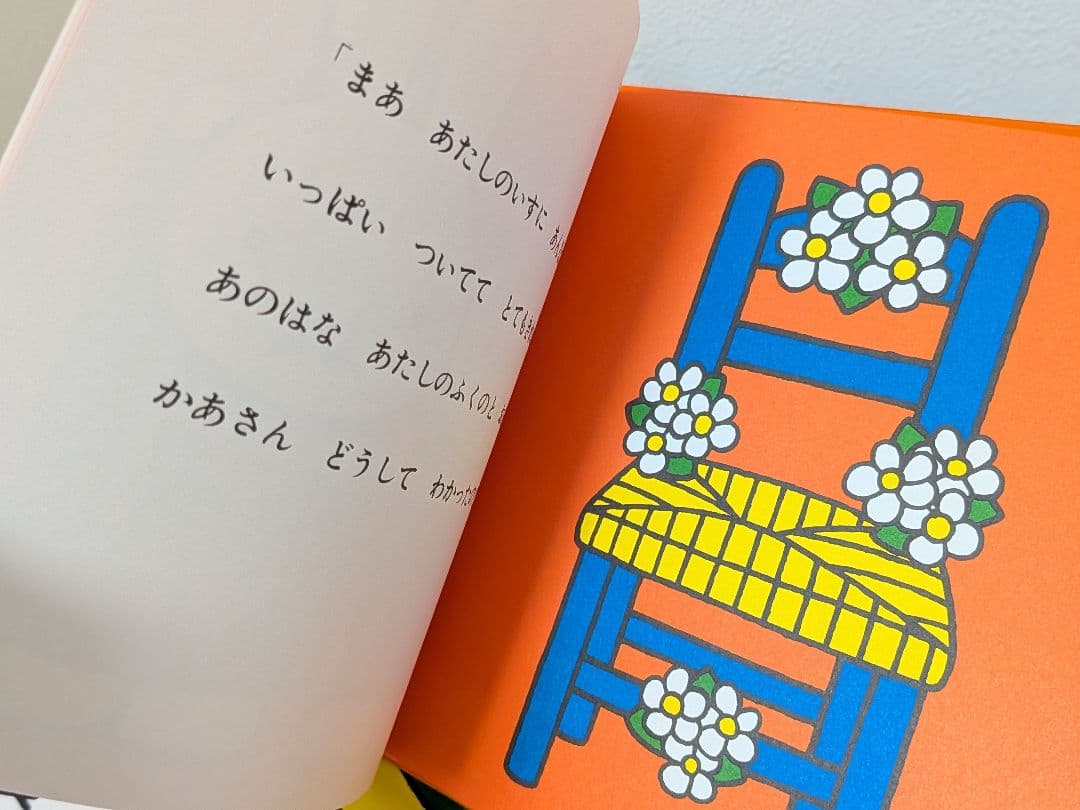 「まあ あたしのいすに
いっぱい ついてて とても
あのはな あたしのふくのと
かあさん どうして わかったの